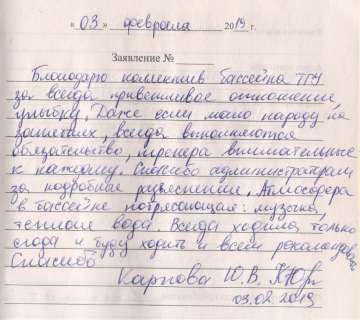 « 03 » февраля 2019 г.
Заявление №
Благодарю коллектив бассейна ТГУ
за всегда приветливое отношение,
улыбку. Даже если мало народу на
занятиях, всегда выполняются
обязательство, тренера внимательные
к каждому. Спасибо администраторам
за подробное разъяснение. Атмосфера
в бассейне потрясающая: музычка,
теплая вода. Всегда ходила только
сюда и буду ходить и всем рекомендовать
Спасибо
Карпова Ю.В.
03.02.2019